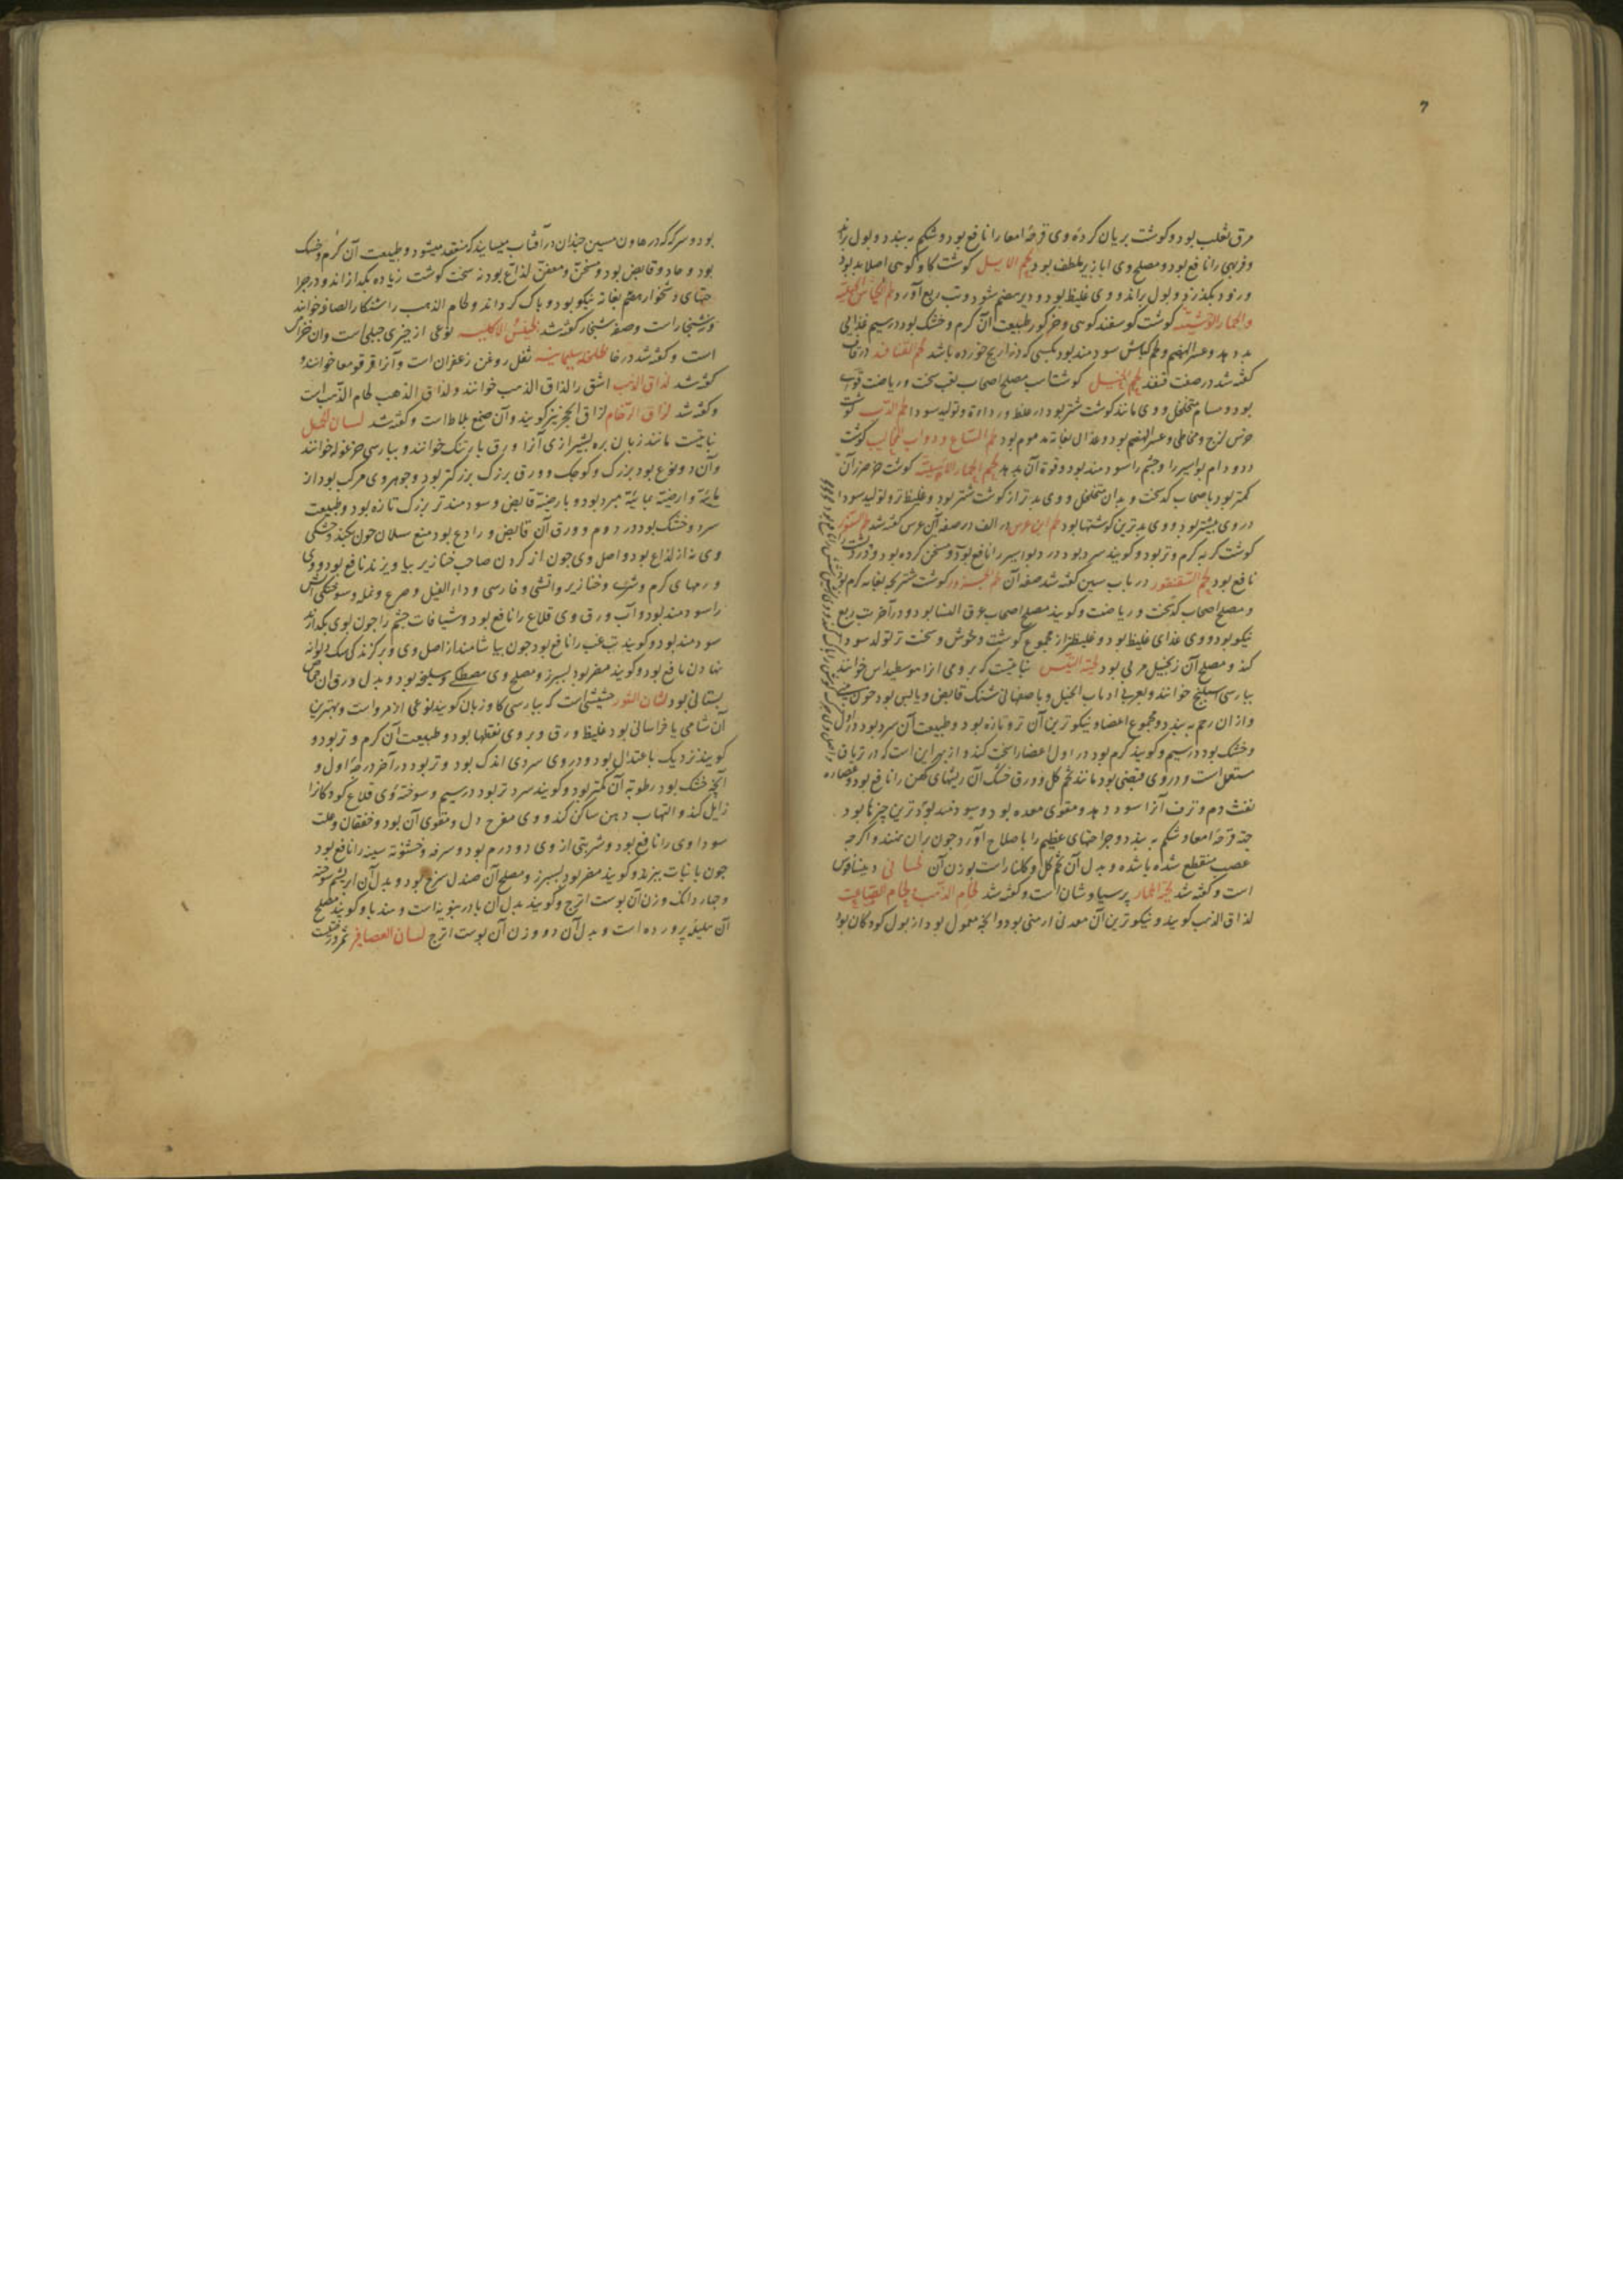 مرق ثعلب بود و کوشت بریان کرده وی قرحهٔ امعا را نافع بود و شکم به بندد و بول براند
و فربهی را نافع بود و مصلح وی ابازیر ملطف بود لحم الایل کوشت کاو کوهی اصلا بد بود
و زود بکذرد و بول براند و وی غلیظ بود و دیر هضم شود و تب ربع آورد لحم الکباش الجبلیة
والحمار الوحشیة کوشت کوسفند کوهی و خر کور طبیعت آن کرم و خشک بود در سیم غذایی
بد دهد و عسر الهضم و لحم کباش سودمند بود بکسی که ذراریح خورده باشد لحم القنافذ در قاف
کفته شد در صفت قنفذ لحم الخیل کوشتاب مصلح اصحاب تعب سخت و ریاضت قوی
بود و مسام متخلخل و وی مانند کوشت شتر بود در غلظ و رداءة و تولید سودا لحم الدب کوشت
خرس لزج و مخاطی و عسر الهضم بود و غذای بغایت مذموم بود لحم السباع و ذوات المخالیب کوشت
دد و دام بواسیر را و چشم را سودمند بود و قوة آن بدهد لحم الحمار الاهلیة کوشت خر
کمتر بود با صحاب کد سخت و بدان متخلخل و وی بدتر از کوشت شتر بود و غلیظ تر و تولید سودا
در وی بیشتر بود و وی بدترین کوشتها بود لحم ابن عرس در الف در صفه ابن عرس کفته شد لحم السنور
کوشت کربه کرم و تر بود و کویند سرد بود درد بواسیر را نافع بود و مسخن کرده بود و درد پشت را
نافع بود لحم السقنقور در باب سین کفته شد صفه آن لحم الجزور کوشت شتر بچه بغایه کرم بود
و مصلح اصحاب کد سخت و ریاضت و کویند مصلح اصحاب عرق النسا بود و در آخر تب ربع
نیکو بود و وی غذای غلیظ بود و غلیظتر از مجموع کوشت وحوش و سخت تر تولد سودا
کند و مصلح آن زنجبیل مربی بود لحیة التیس نباتیست که برومی ازا هوسطیداس خوانند
بپارسی اسپلنج خوانند و بعربی اذناب الخیل و باصفهانی شنک قابض و یابس بود خون
و از ان رحم به بندد و مجموع اعضا و نیکوترین آن تر و تازه بود و طبیعت آن سرد بود در اول
و خشک بود در سیم و کویند کرم بود در اول اعضا را سخت کند و از بهر این است که در تریاق
مستعل است و در وی قبضی بود مانند تخم کل و ورق خشک آن ریشهای کهن را نافع بود و عصاره
نفث دم و نزف آنرا سود دهد و مقوی معده بود و سودمندبودترین چیزها بود
جهة قرحهٔ امعا و شکم به بندد و جراحتهای عظیم را باصلاح آورد چون بران نهند و اکرچه
عصب منقطع شده باشد و بدل آن تخم کل و کلنار است بوزن آن
است و کفته شد لحیة الحمار پرسیاوشان است و کفته شد لحام الذهب لحام الصاغة
لذاق الذهب کویند و نیکوترین آن معدنی ارمنی بود و آنچه معمول بود از بول کودکان بود
بود و سرکه که در هاون مسین چندان در آفتاب میسایند که منعقد میشود و طبیعت آن کرم و خشک
بود و حاد و قابض بود و مسخن و معفن لذاع بود نه سخت کوشت زیاده بکدازاند و در جرا
حتهای دشخوار هضم بغایة نیکو بود و پاک کرداند و لحام الذهب را شنکار الصاغه خوانند
و شنجار است و صفه شنجار کفته شد لحیفس الاکلیه نوعی از خیری جبلی است
است و کفته شد در خا طلخه سلیمانیه ثفل روغن زعفران است و آنرا قرقومغما خوانند و
کفته شد لذاق الذهب اشق را لذاق الذهب خوانند و لذاق الذهب لحام الذهب است
و کفته شد لزاق الرخام لزاق الحجر نیز کویند و آن صمغ بلاط است و کفته شد لسان الحمل
نباتیست مانند زبان بره بشیرازی آنرا ورق بارتنک خوانند و بپارسی خرغوله خوانند
و آن دو نوع بود بزرک و کوچک و ورق بزرک بزرکتر بود و جوهر وی مرکب بود از
مائیة و ارضیة بمائیة مبرد بود و بارضیة قابض و سودمندتر بزرک تازه بود و طبیعت
سرد و خشک بود در دوم و ورق آن قابض و رادع بود منع سیلان خون بکند و خشکی
وی نه از لذاع بود و اصل وی چون از کردن صاحب خنازیر بیاویزند نافع بود و وی
ورمهای کرم و شری و خنازیر و اتشی و فارسی و داء الفیل و صرع و نمله و سوختکی آتش
را سودمند بود و آب ورق وی قلاع را نافع بود و شیافات چشم را چون بوی بکدازند
سودمند بود و کویند تب غب را نافع بود چون بیاشامند از اصل وی و بر کزندکی سک دیوانه
نهادن نافع بود و کویند مضر بود بسپرز و مصلح وی مصطکی و سلیخه بود و بدل ورق آن حماض
بستانی بود لسان الثور حشیشی است که بپارسی کاوزبان کویند نوعی از مرو است و بهترین
آن شامی یا خراسانی بود غلیظ ورق و بر وی نقطها بود و طبیعت آن کرم و تر بود و
کویند نزدیک باعتدال بود و در وی سردی اندک بود و تر بود در آخر درجهٔ اول و
آنچه خشک بود رطوبة آن کمتر بود و کویند سرد تر بود در سیم و سوخته وی قلاع کودکانرا
زایل کند و التهاب دهن ساکن کند و وی مفرح دل و مقوی آن بود و خفقان و علت
سوداوی را نافع بود و شربتی از وی دو درم بود و سرفه و خشونة سینه را نافع بود
چون با نبات بپزند و کویند مضر بود بسپرز و مصلح آن صندل سرخ بود و بدل آن ابریشم سوخته
و چهار دانک وزن آن پوست اترج و کویند بدل آن بادرنبویه است و کویند مصلح
آن هلیله پرورده است و بدل آن دو وزن آن پوست اترج لسان العصافیر ثمر درختیست